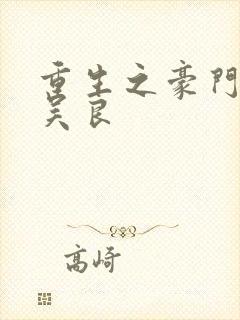 重生之豪門
吴良
高崎